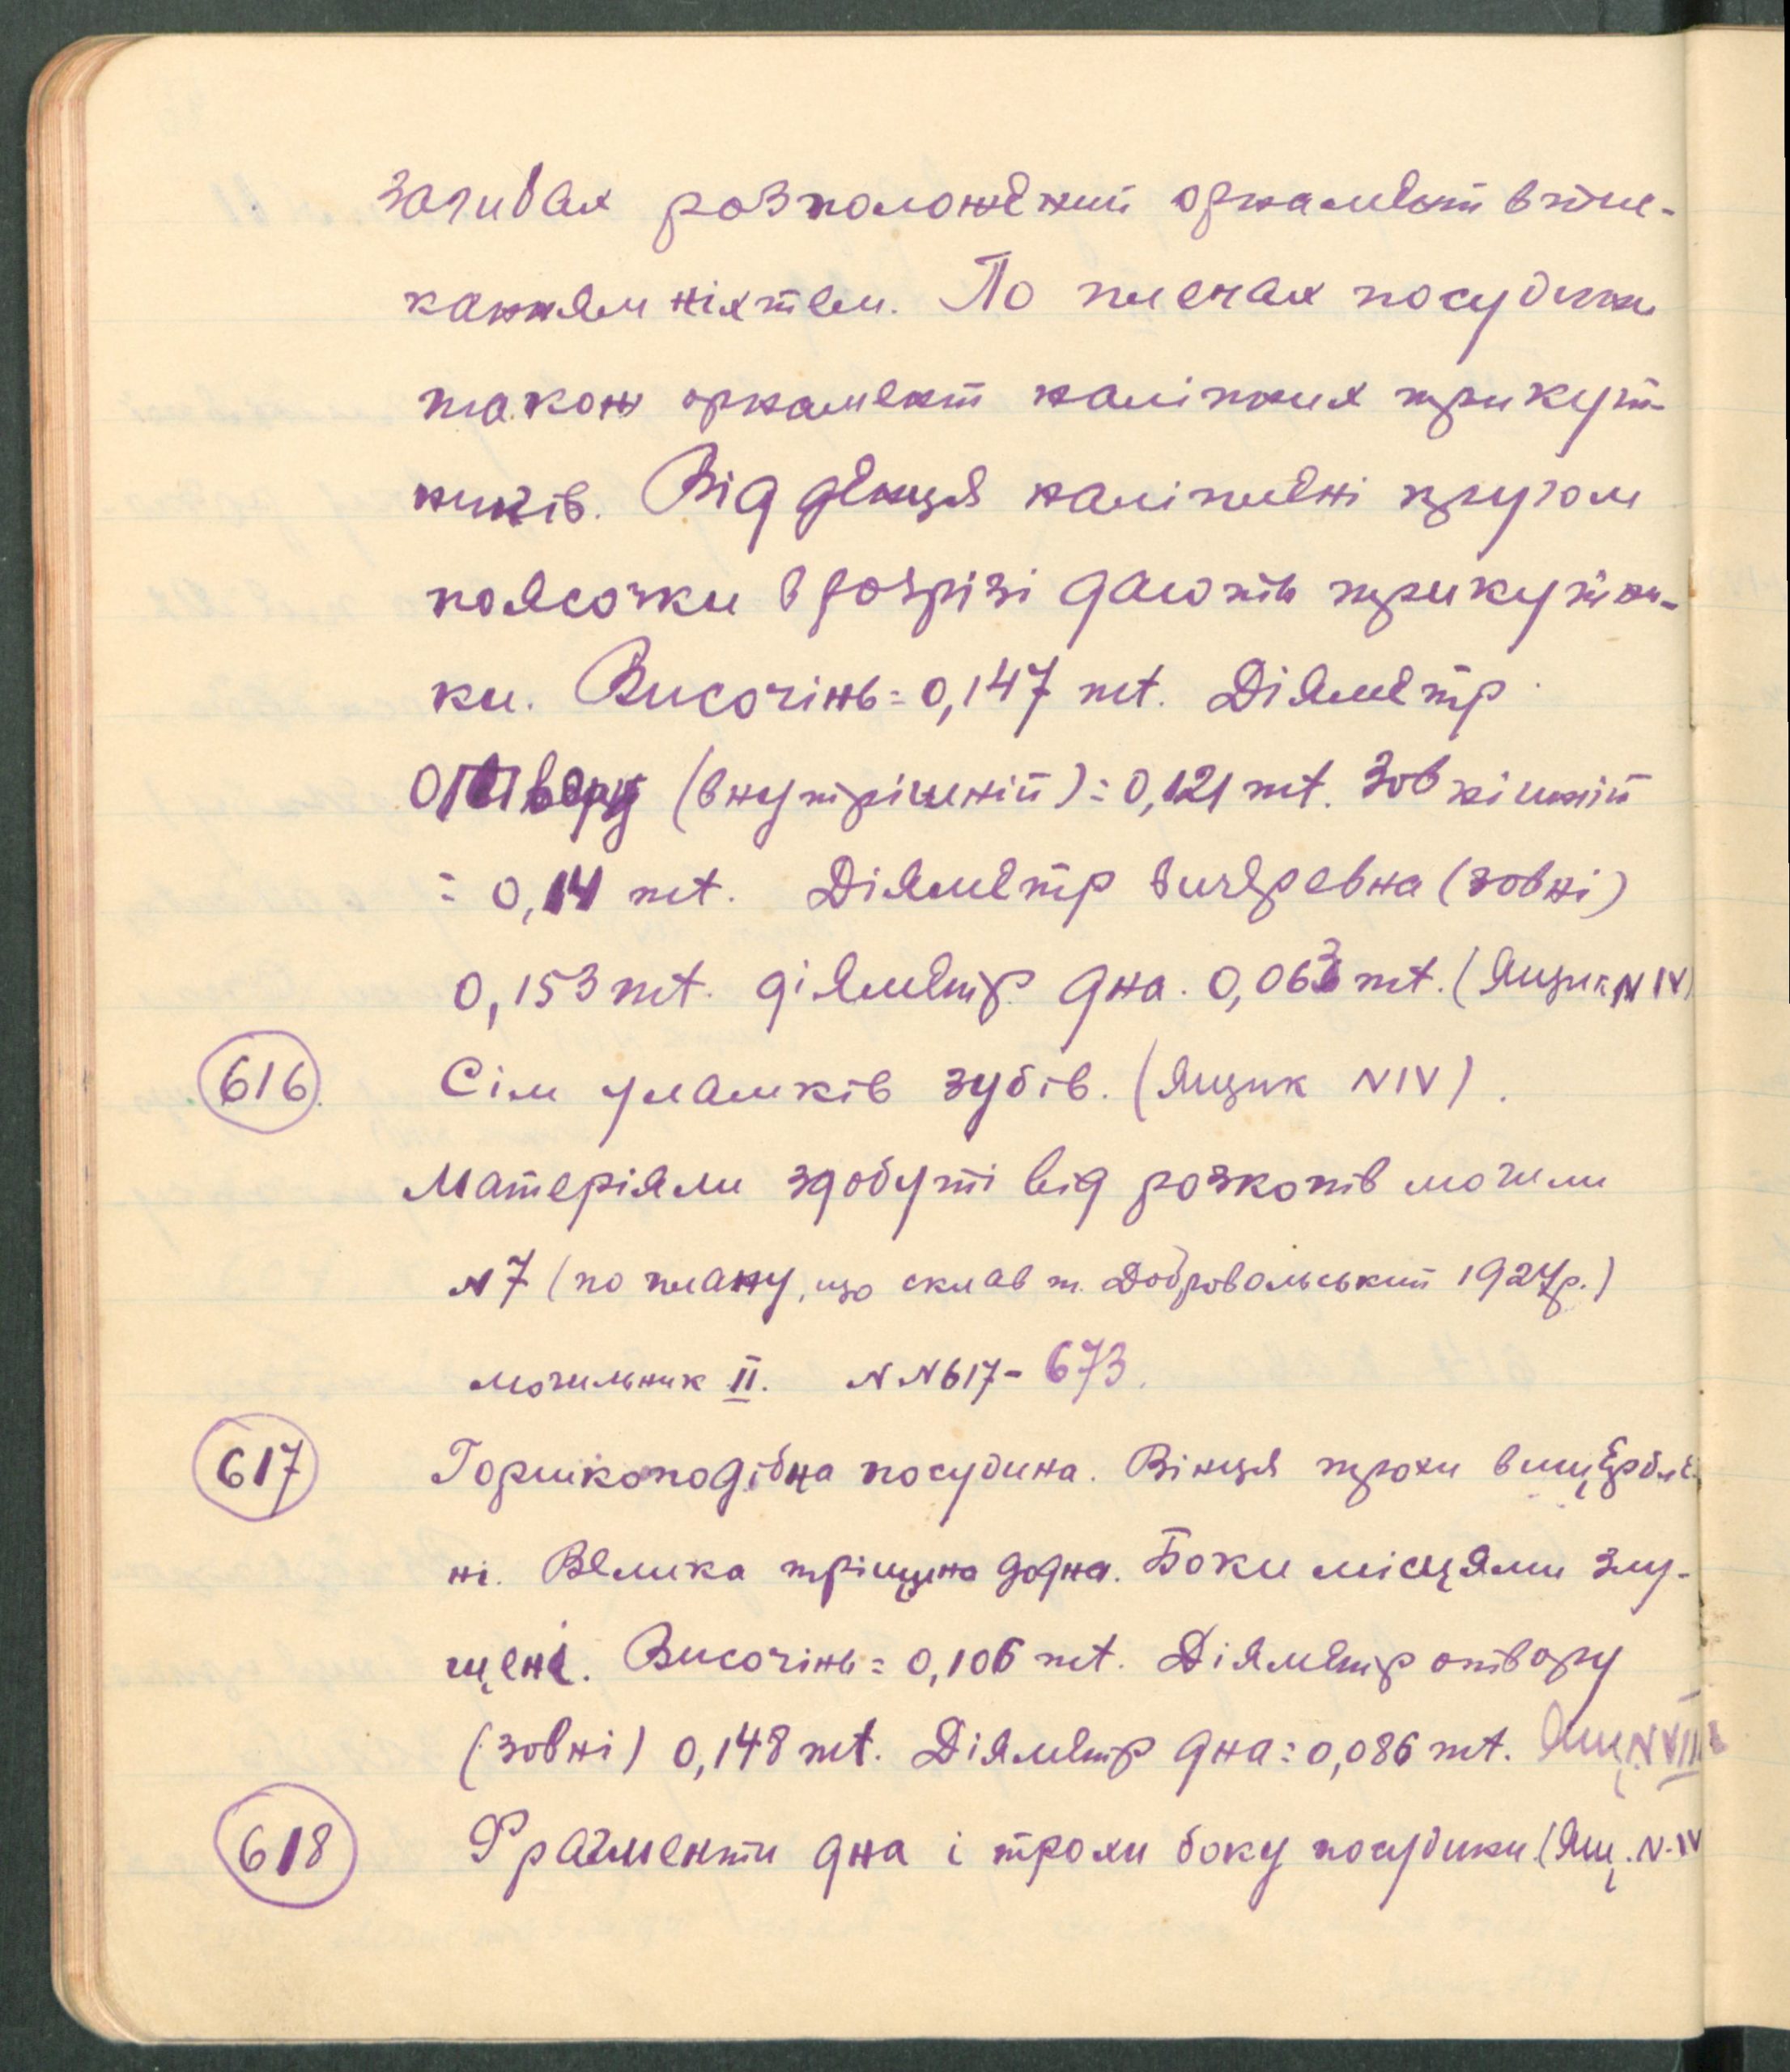 загибах розположений орнамент втис-
канням нігтем. По плечах посудини
також орнамент наліпних трикут-
ників. Від денця наліплені кругом
поясочки в розрізі дають трикутни-
ки. Височінь = 0,147 mt. Діяметр
отвору (внутрішній) = 0,121 mt. Зовнішній
= 0,14 mt. Діяметр вичеревна (зовні)
0,153 mt. діяметр дна. 0,063 mt. (Ящик N IV)
616. Сім уламків зубів. (Ящик N IV).
Матеріяли здобуті від розкопів могили
N 7 (по плану, що склав т. Добровольський 1927р.)
могильник II. N N 617 - 673.
617 Горшкоподібна посудина. Вінця трохи вищербле-
ні. Велика тріщина до дна. Боки місцями злу-
щені. Височінь = 0,106 mt. Діяметр отвору
(зовні) 0,148 mt. Діяметр дна = 0,086 mt. Ящ. N VIII
618 Фрагменти дна і трохи боку посудини. (Ящ. N. IV